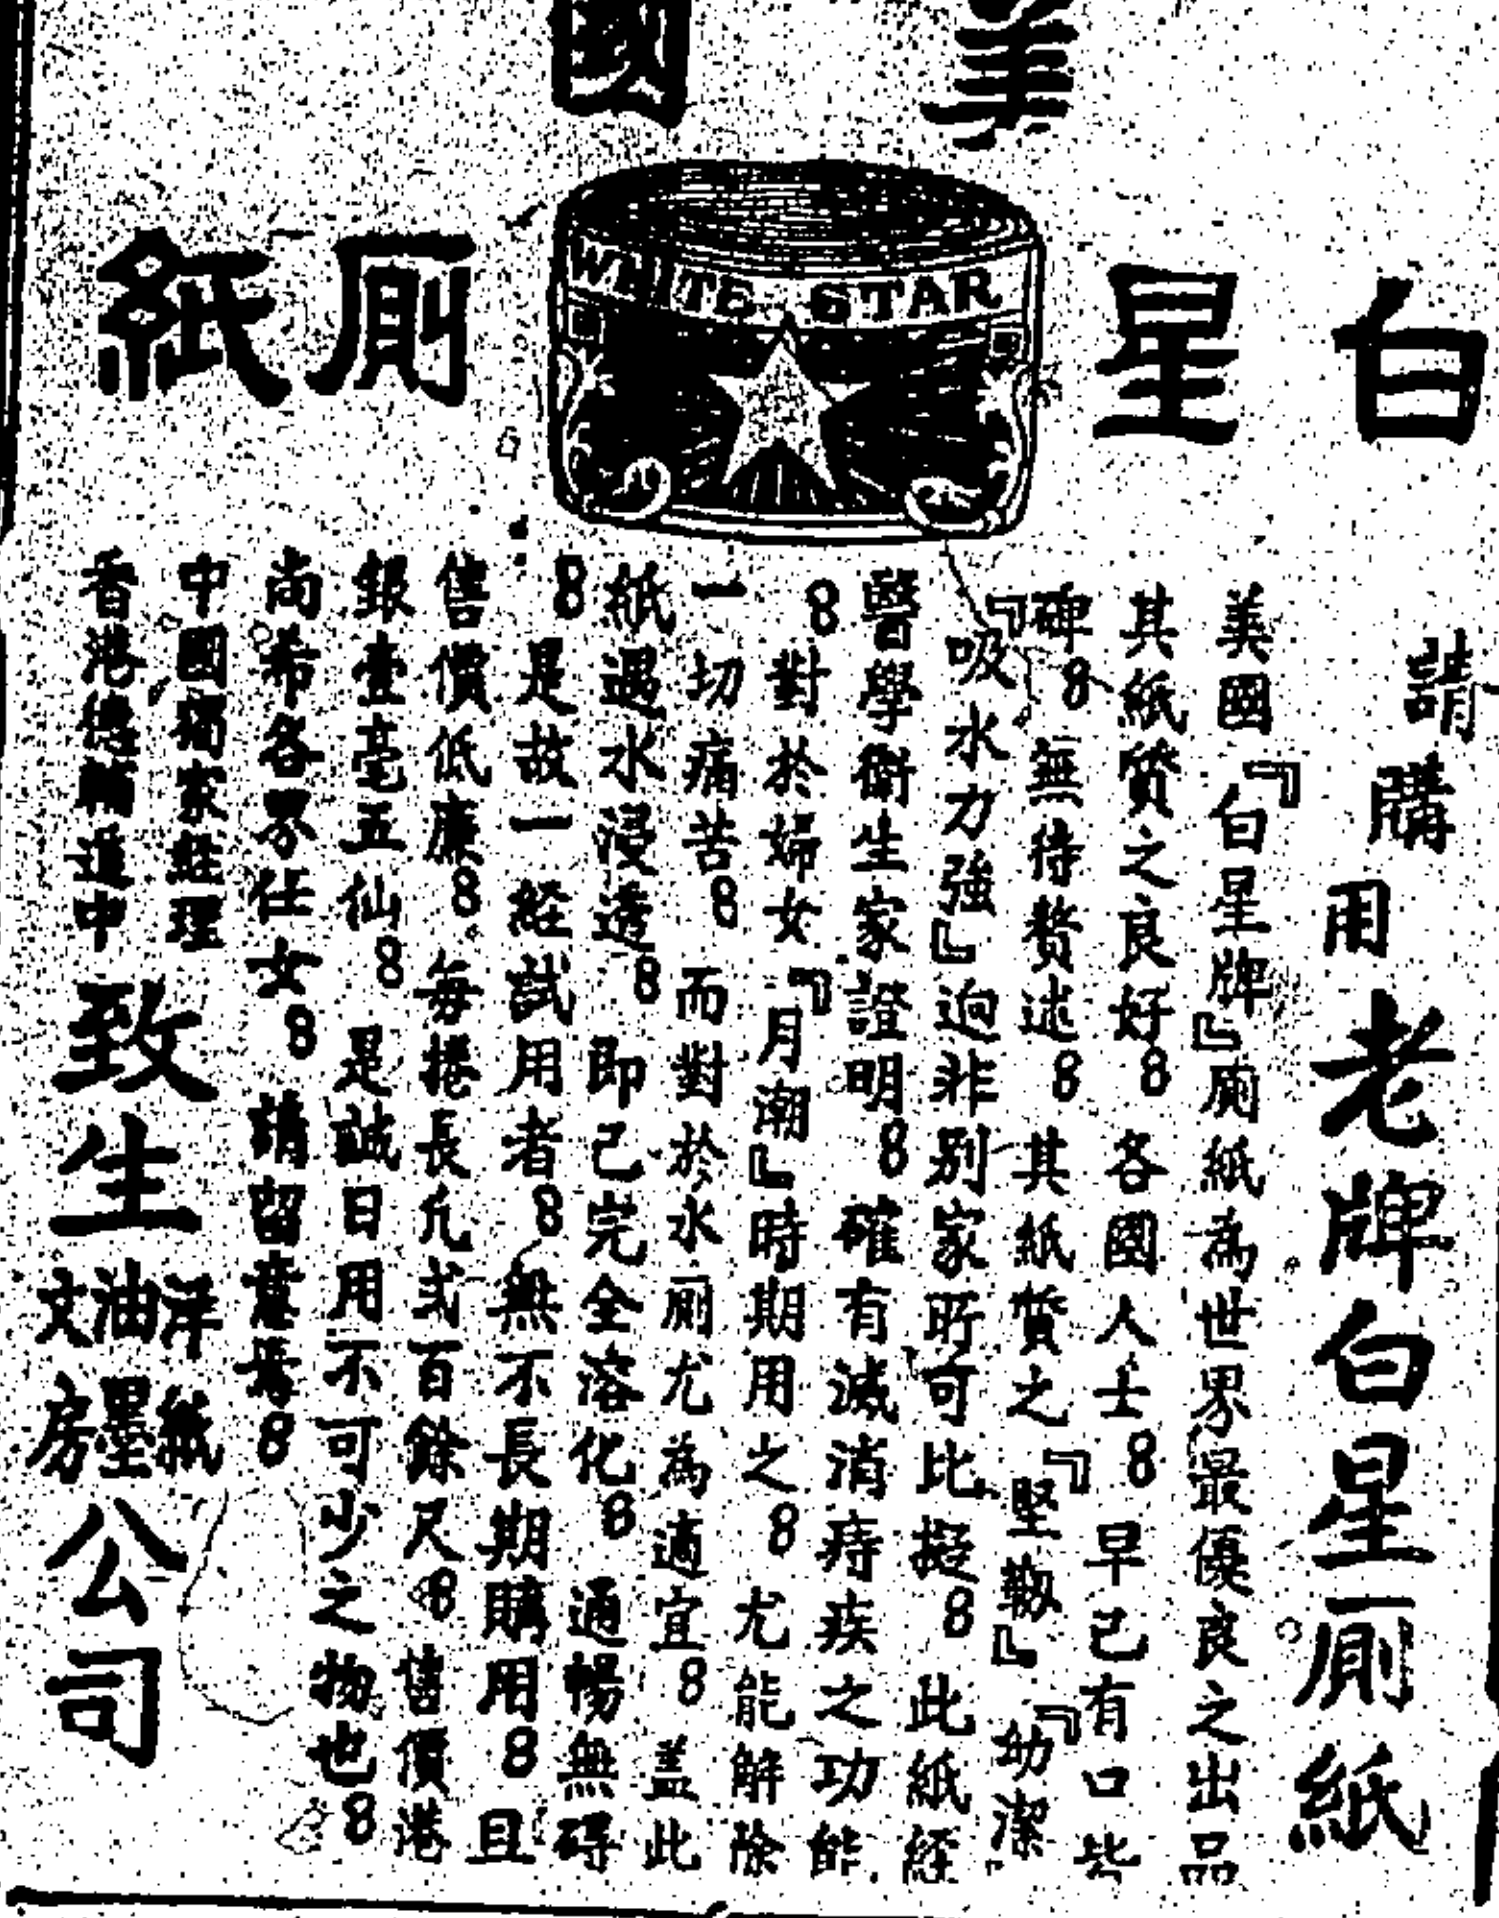 美國
白星廁紙
WHITE STAR
請購用老牌白星厠紙
美國『白星牌』廁紙為世界最優良之出品
其紙質之良好8各國人士8早已有口皆
碑8無待贅述8其紙質之『堅韌』『幼潔』
『吸水力強』迥非別家所可比擬8此紙經
醫學衛生家證明8確有減消痔疾之功能
8對於婦女『月潮』時期用之8尤能解除
一切痛苦8而對於水厠尤為適宜8盖此
紙遇水浸透8即己完全溶化8通暢無碍
8是故一経試用者8無不長期購用8且
售價低廉8每捲長凢弍百餘尺8售價港
銀壹毫五仙8是誠日用不可少之物也8
尚希各界仕女8請留意焉8
中國獨家経理
香港德輔道中
致生洋紙油墨文房公司